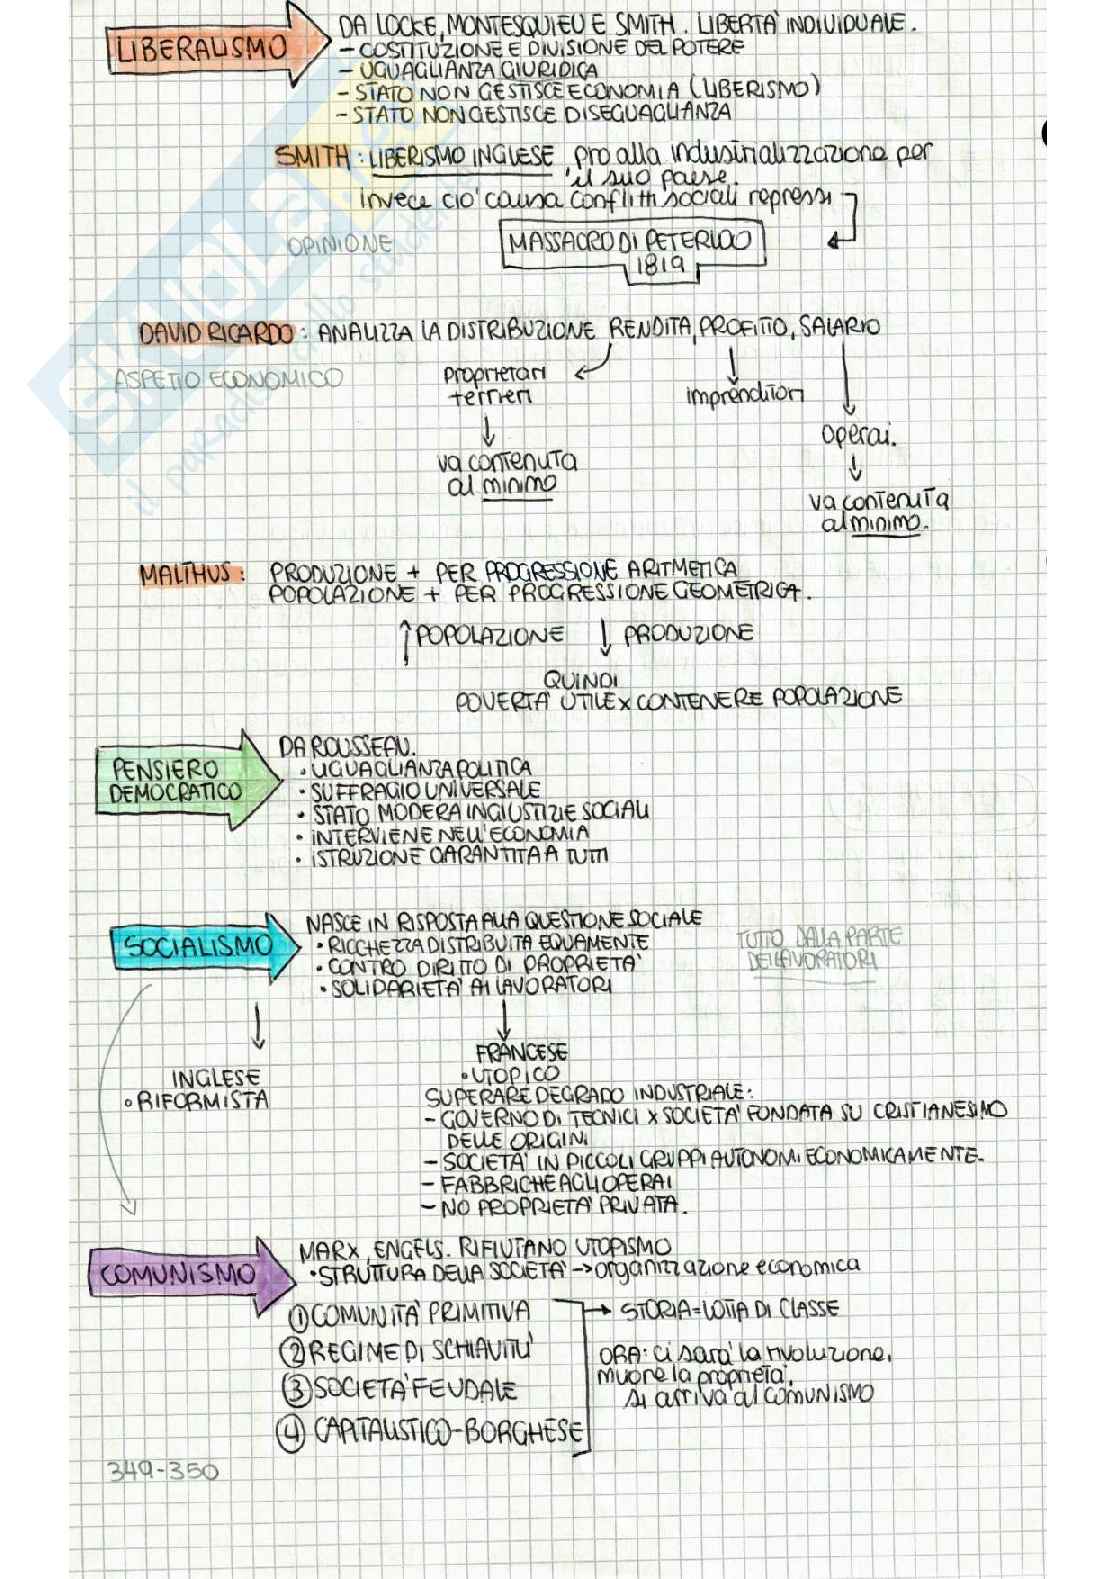 LIBERALISMO
DA LOCKE, MONTESQUIEU E SMITH. LIBERTA' INDIVIDUALE.
- COSTITUZIONE E DIVISIONE DEL POTERE
- UGUAGLIANZA GIURIDICA
- STATO NON GESTISCE ECONOMIA (LIBERISMO)
- STATO NON GESTISCE DISEGUAGLIANZA
SMITH: LIBERISMO INGLESE, pro alla industrializzazione per
il suo paese.
invece cio' causa conflitti sociali repressi
OPINIONE
MASSACRO DI PETERLOO
1819
DAVID RICARDO: ANALIZZA LA DISTRIBUZIONE RENDITA, PROFITTO, SALARIO
ASPETTO ECONOMICO
proprietari
terrieri
imprenditori
operai.
va contenuta
al minimo
va contenuta
al minimo.
MALTHUS: PRODUZIONE + PER PROGRESSIONE ARITMETICA
POPOLAZIONE + PER PROGRESSIONE GEOMETRICA.
↑ POPOLAZIONE ↓ PRODUZIONE
QUINDI
POVERTA' UTILE x CONTENERE POPOLAZIONE
PENSIERO
DEMOCRATICO
DA ROUSSEAU.
• UGUAGLIANZA POLITICA
• SUFFRAGIO UNIVERSALE
• STATO MODERA INGIUSTIZIE SOCIALI
• INTERVIENE NELL'ECONOMIA
• ISTRUZIONE GARANTITA A TUTTI
SOCIALISMO
NASCE IN RISPOSTA ALLA QUESTIONE SOCIALE
• RICCHEZZA DISTRIBUITA EQUAMENTE
• CONTRO DIRITTO DI PROPRIETA'
• SOLIDARIETA' AI LAVORATORI
TUTTO DALLA PARTE
DEI LAVORATORI
INGLESE
• RIFORMISTA
FRANCESE
• UTOPICO
SUPERARE DEGRADO INDUSTRIALE:
- GOVERNO DI TECNICI x SOCIETA' FONDATA SU CRISTIANESIMO
DELLE ORIGINI
- SOCIETA' IN PICCOLI GRUPPI AUTONOMI ECONOMICAMENTE.
- FABBRICHE AGLI OPERAI
- NO PROPRIETA' PRIVATA.
COMUNISMO
MARX, ENGELS. RIFIUTANO UTOPISMO
• STRUTTURA DELLA SOCIETA' → organizzazione economica
① COMUNITA' PRIMITIVA
② REGIME DI SCHIAVITU'
③ SOCIETA' FEUDALE
④ CAPITALISTICO-BORGHESE
→ STORIA = LOTTA DI CLASSE
ORA: ci sara' la rivoluzione,
muore la proprieta',
si arriva al COMUNISMO
349-350
SKUOLA.net
il paradiso dello studente